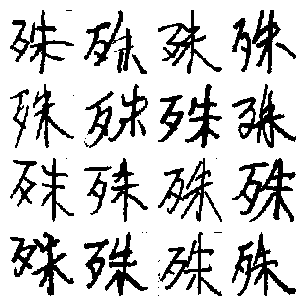 殊殊殊殊
殊殊殊殊
殊殊殊殊
殊殊殊殊